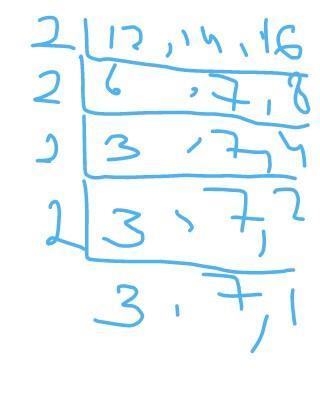 2 | 12, 14, 16
2 | 6, 7, 8
2 | 3, 7, 4
2 | 3, 7, 2
3, 7, 1